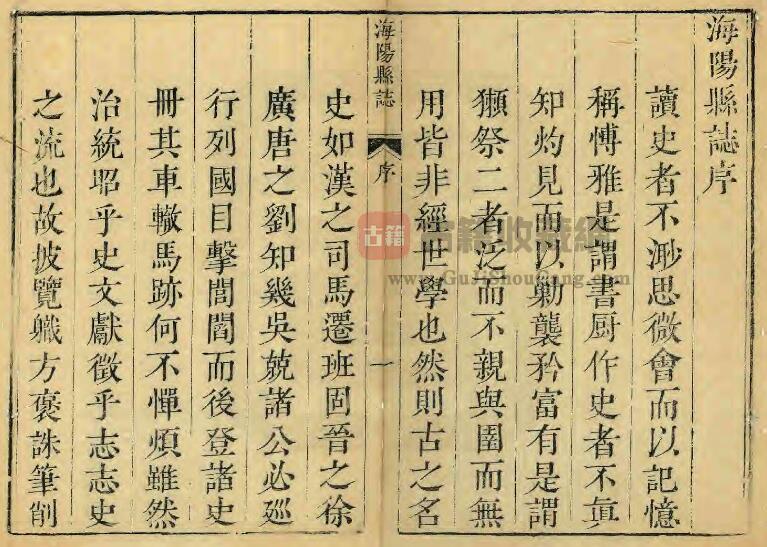 海陽縣誌序
讀史者不渺思微會而以記憶
稱愽雅是謂書厨作史者不眞
知灼見而以勦襲矜富有是謂
獺祭二者泛而不親與圄而無
用皆非經世學也然則古之名
海陽縣誌 序 一
史如漢之司馬遷班固晉之徐
廣唐之劉知幾吳兢諸公必廵
行列國目擊閭閻而後登諸史
冊其車轍馬跡何不憚煩雖然
治統昭乎史文獻徵乎志志史
之流也故披覽職方褒誅筆削
古籍 古籍收藏網
www.GuJiShouCang.com